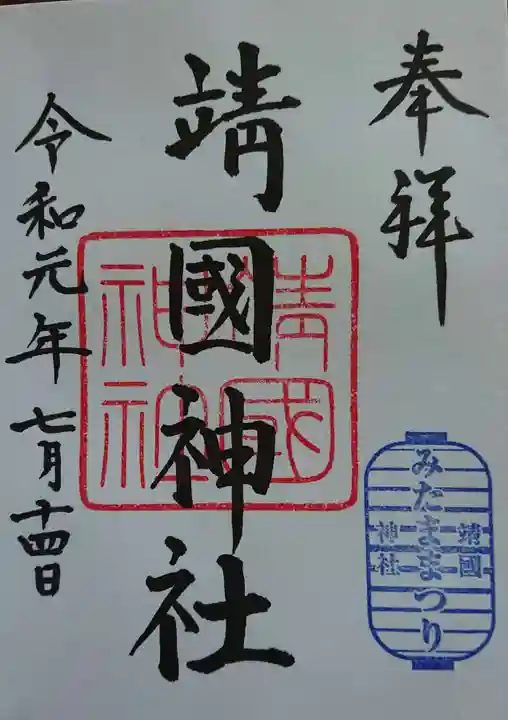 奉拝
靖國神社
靖國
神社
みたままつり
靖國
神社
令和元年七月十四日